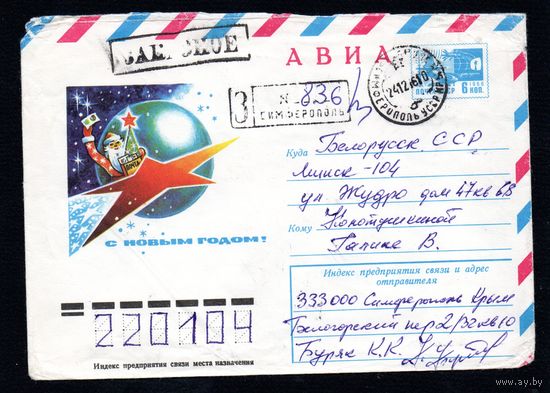 ЗАКАЗНОЕ
АВИА
ПОЧТА СССР 1966
6 КОП.
З № 836
СИМФЕРОПОЛЬ
24.12.76 10
СИМФЕРОПОЛЬ УССР
КОСМИЧ.
ПОЧТА
С НОВЫМ ГОДОМ!
Куда Белорусск ССР
Минск-104
ул. Жудро дом 47 кв 68
Кому
Галине В.
Индекс предприятия связи и адрес
отправителя
333000 Симферополь Крым
Белогорский пер 2/32 кв 10
Буряк К.К.
220104
Индекс предприятия связи места назначения
www.ay.by